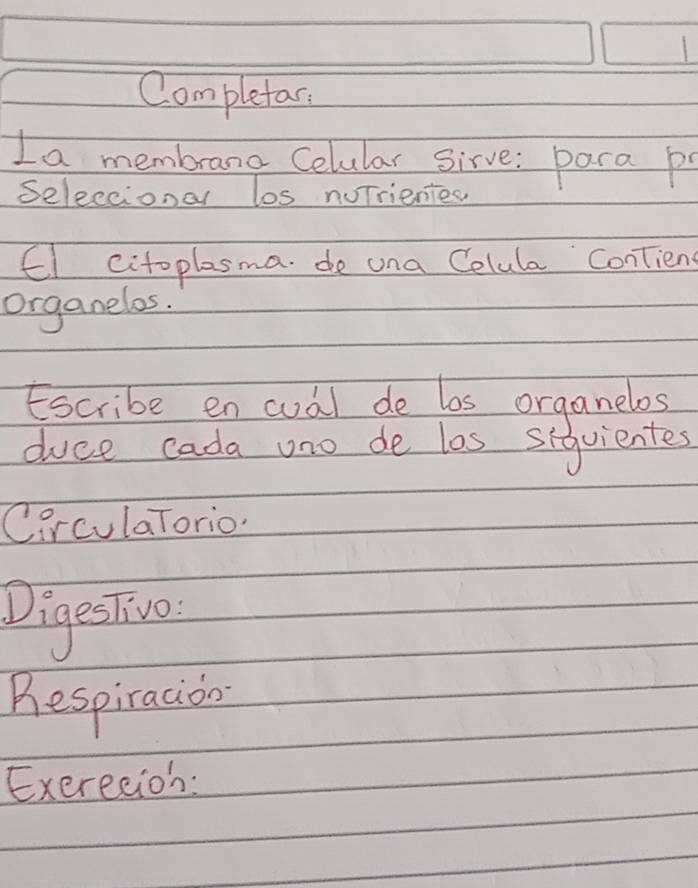 1
Completar:
La membrana Celular Sirve: para
Seleccionar los nuTrientes.
El citoplasma. de una Celula
organelos.
Escribe en cuál de los organelos
duce cada uno de los siguientes
CirculaTorio.
DigesTivo:
Respiración-
Exereción: